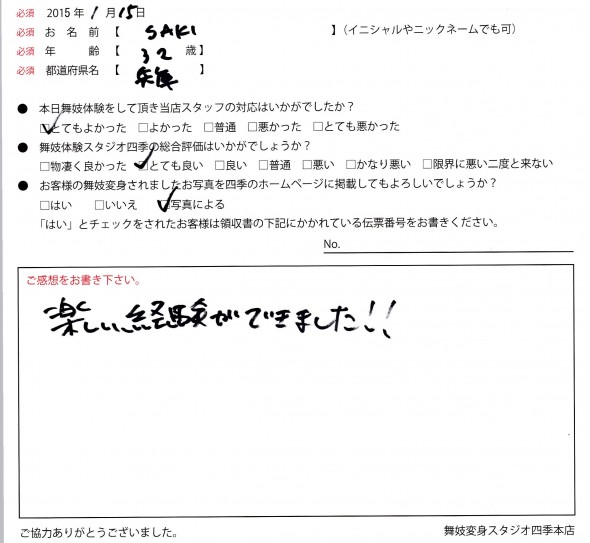 必須 2015 年 1 月 15日
必須 お 名 前 【 SAKI 】(イニシャルやニックネームでも可)
必須 年 齢 【 32 歳】
必須 都道府県名 【 】
● 本日舞妓体験をして頂き当店スタッフの対応はいかがでしたか？
☑とてもよかった □よかった □普通 □悪かった □とても悪かった
● 舞妓体験スタジオ四季の総合評価はいかがでしょうか？
□物凄く良かった ☑とても良い □良い □普通 □悪い □かなり悪い □限界に悪い二度と来ない
● お客様の舞妓変身されましたお写真を四季のホームページに掲載してもよろしいでしょうか？
□はい □いいえ ☑写真による
「はい」とチェックをされたお客様は領収書の下記にかかれている伝票番号をお書きください。
No.
ご感想をお書き下さい。
楽しい経験ができました!!
ご協力ありがとうございました。 舞妓変身スタジオ四季本店